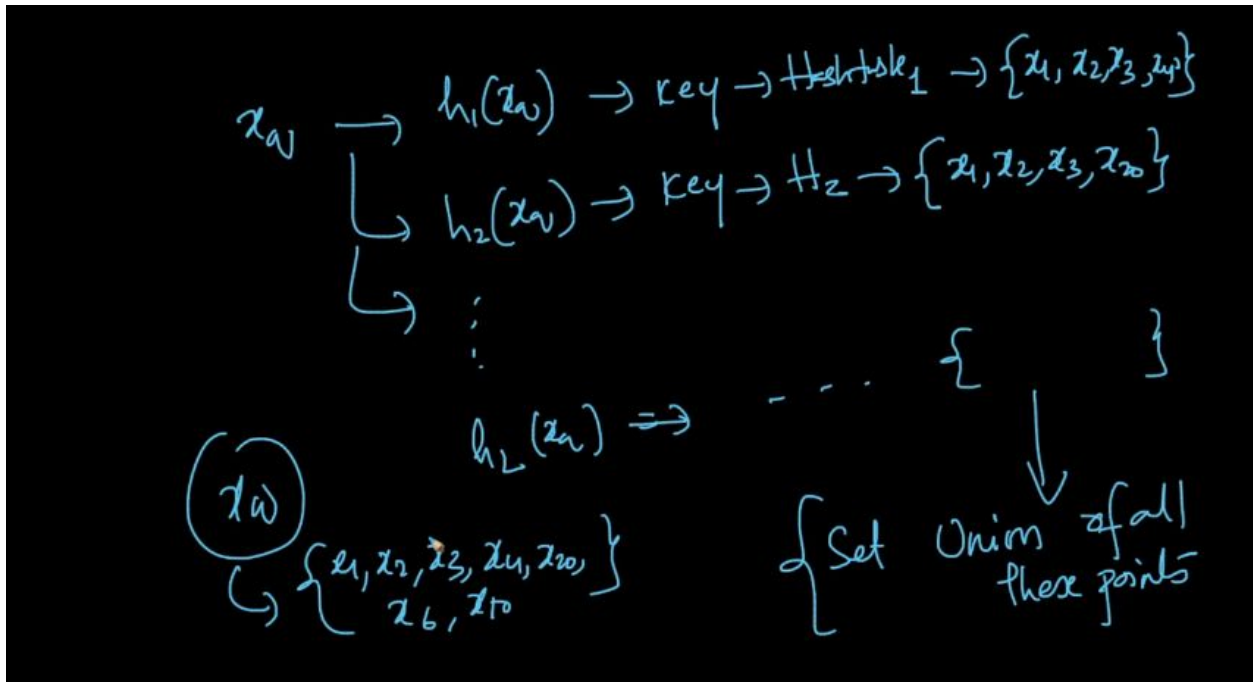 x_q → h₁(x_q) → key → Hashtable₁ → {x₁, x₂, x₃, x₄}
h₂(x_q) → key → H₂ → {x₁, x₂, x₃, x₂₀}
⋮
h_L(x_q) ⇒ - - . { }
x_q
{x₁, x₂, x₃, x₄, x₂₀,
x₆, x₁₀}
{Set Union of all
these points